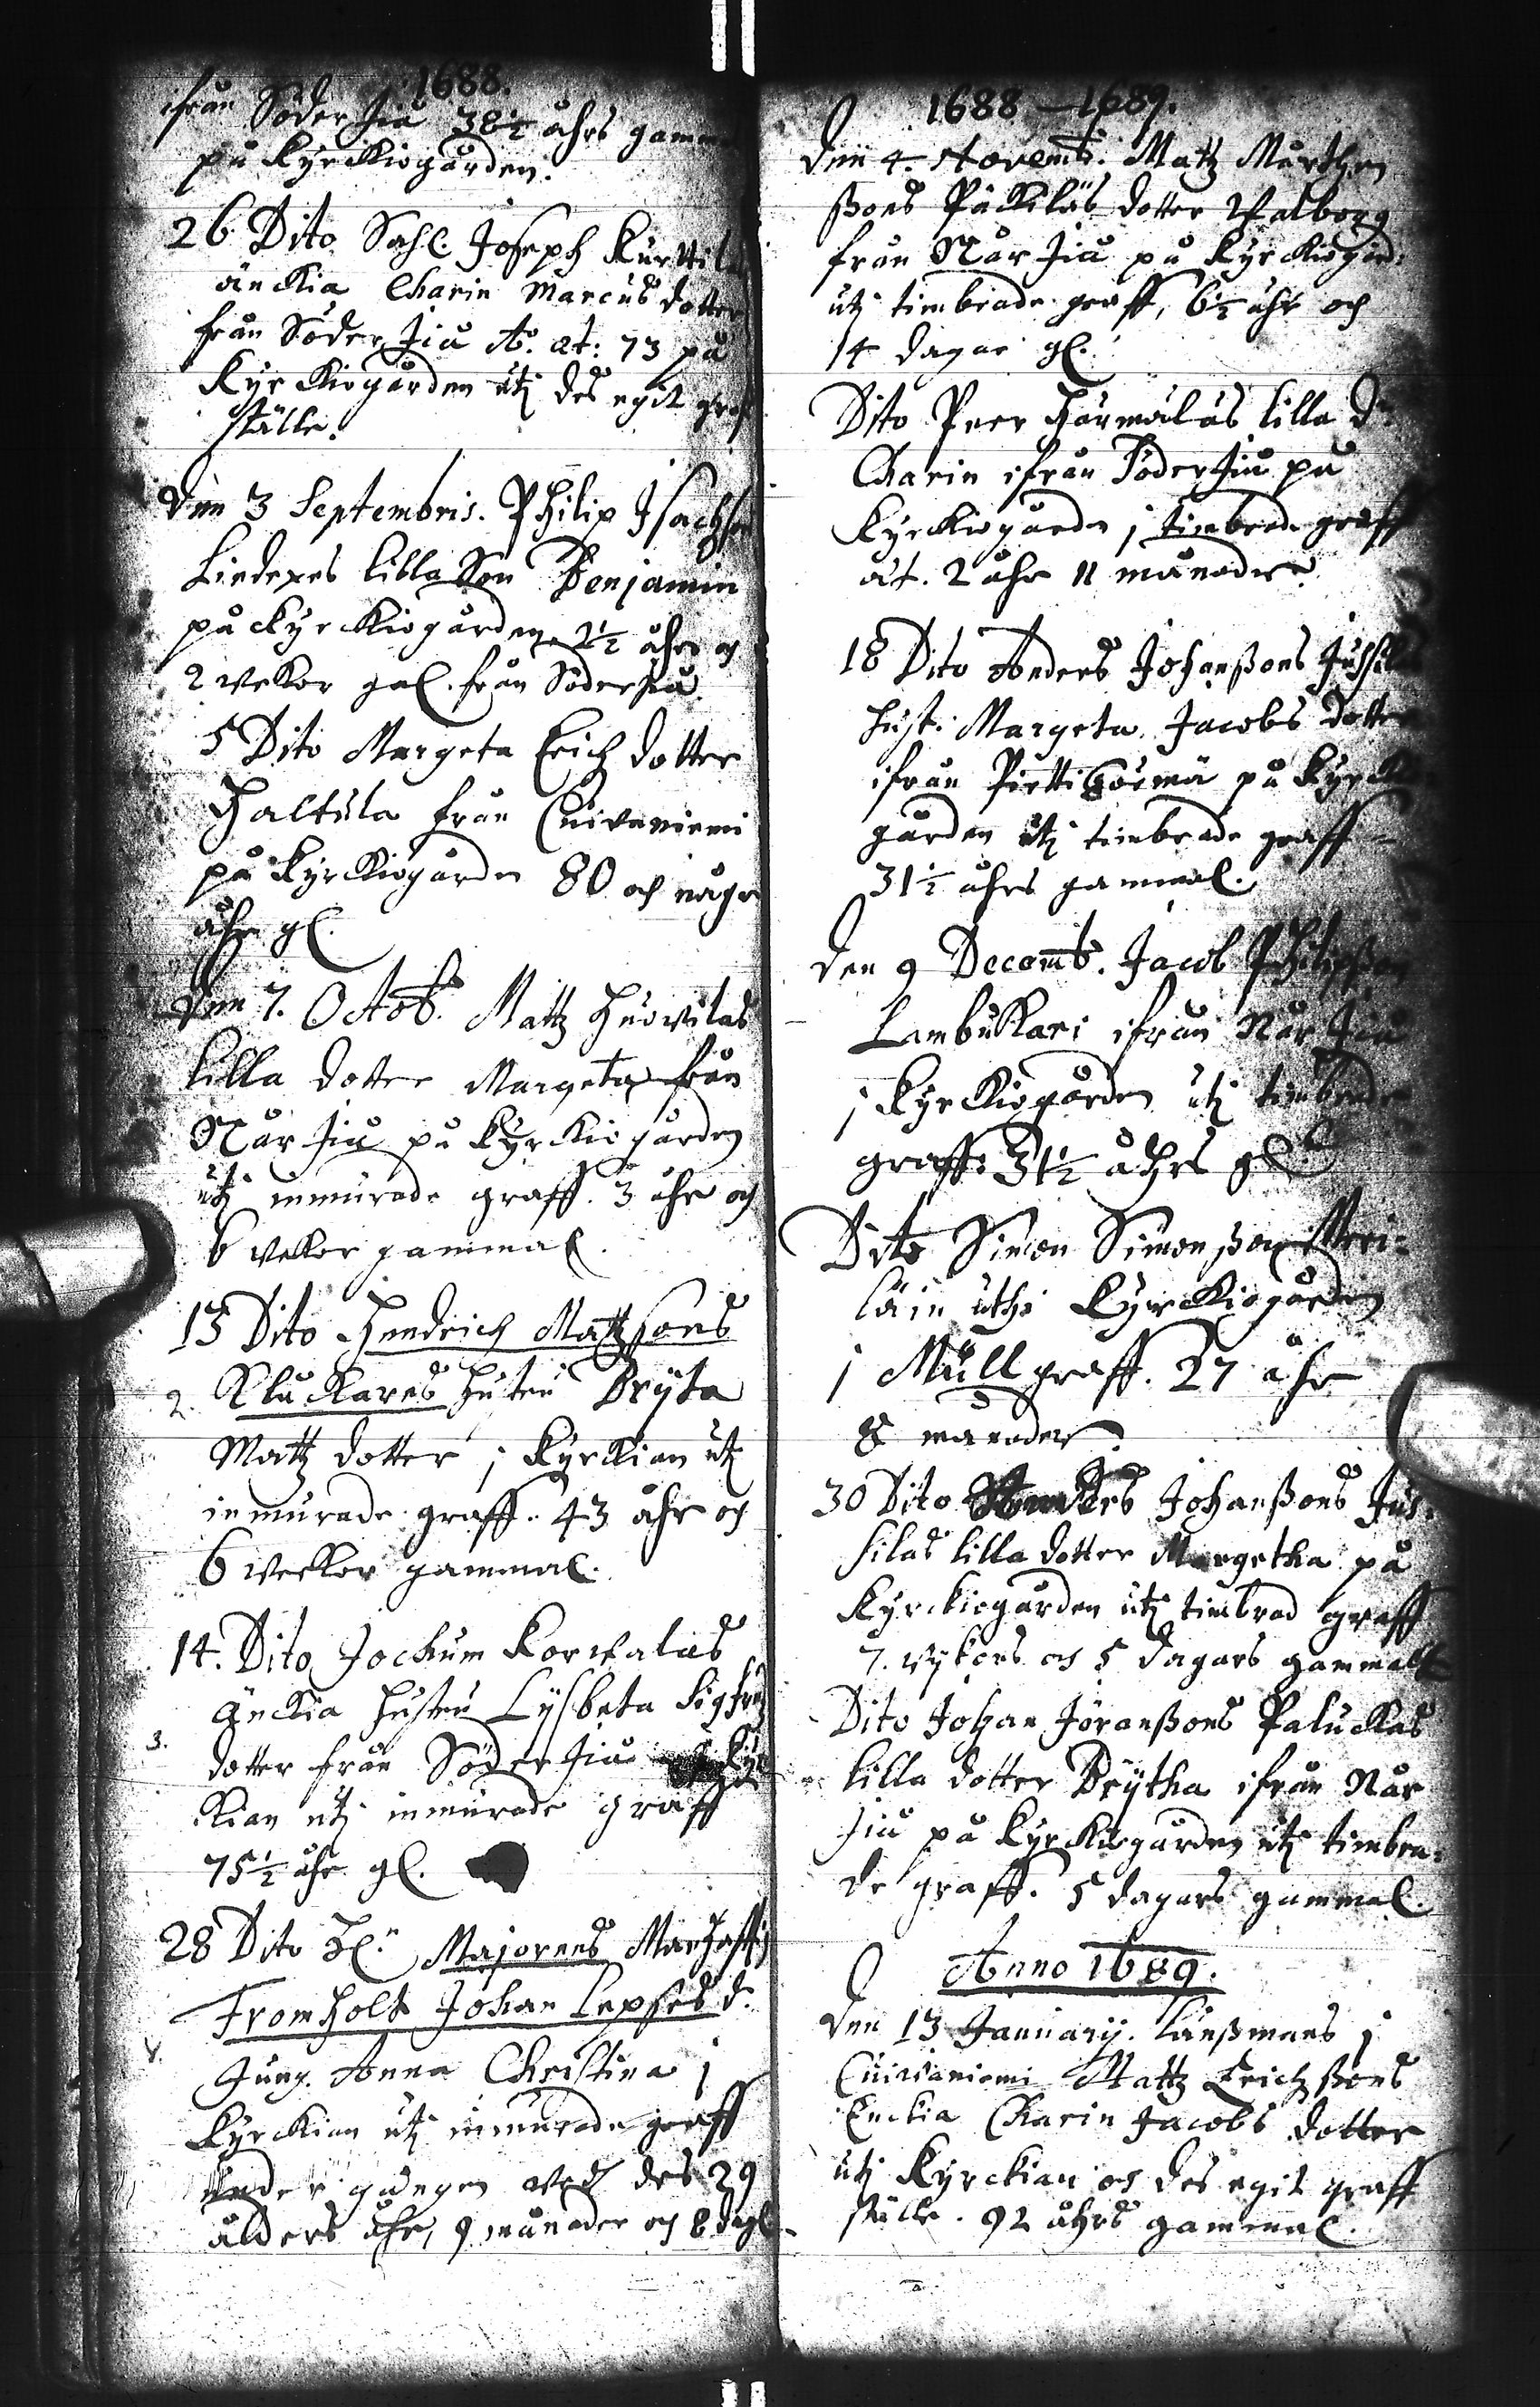 1688.
ifrån Söder Jiå 38½ åhrs gam
på Kyrckiogården.
26 Dito Sahl. Joseph Kurttila
änckia Charin Marcus dotter
från Söder Jiå Ao. æt: 73 på
Kyrckiogården utj des egit graf
ställe.
Den 3 Septembris. Philip Isachson
Liedepes lilla Son Benjamin
på Kyrckiogården 2½ åhr och
2 vekor gal. från Söder Jiå
5 Dito Margeta Erich dotter
Haltula från Cuivaniemi
på Kyrckiogården 80 och någre
åhr gl.
Den 7. Octob. Mattz Huovilas
lilla dotter Margeta från
Når Jiå på Kyrckiogården
utj inmurade graff. 3 åhr och
6 vekor gammal.
13 Dito Hendrich Mattzsons
2. Kluckares hustru Bryta
Mattz dotter j Kyrckian utj
inmurade graff. 43 åhr och
6 veckor gammal.
14. Dito Jochum Korvalas
änckia hustru Lysbeta Sigfridz
3. dotter från Söder Jiå Kyr
kian utj inmurade graff
75½ åhr gl.
28 Dito H. Majorens Manhafftig
Fromholt Johan Lepses d.
Jung. Anna Christina j
Kyrckian utj inmurade graff
under gången vedh des 29
ålders åhr, 9 månader och 8 dag.
1688 – 1689.
Den 4. Novemb. Mattz Mårthen
ßons Päckiläs dotter Valborg
från Når Jiå på Kyrckiogård:
utj timbrade graff, 6½ åhr och
14 dagar gl.
Dito Peer Härmäläs lilla d.
Charin ifrån Söder Jiå på
Kyrckiogården j timbrade graff
æt. 2 åhr 11 månader.
18 Dito Anders Johanßons Jussilas
hust. Margeta Jacobs dotter
ifrån Pirttikåsmä på Kyrckio
gården utj timbrade graff
31½ åhrs gammal.
Den 9 Decemb. Jacob Philipßon
Lambukari ifrån Når Jiå
j Kyrckiogården utj timbrade
graff. 31½ åhrs gl.
Dito Simon Simonßon Meri-
läin uthi Kyrckiogården
j Mull graff. 27 åhr
8 månader.
30 Dito Anders Johanßons Jus-
silas lilla dotter Margetha på
Kyrckiogården utj timbrad graff
7. vykors och 5 dagars gammal
Dito Johan Jöranßons Paluckas
lilla dotter Brytha ifrån Når
Jiå på Kyrckiogården utj timbra-
de graff. 5 dagars gammal.
Anno 1689.
Den 13 Januarij. Länßmans j
Cuivaniemi Mattz Erichßons
Enckia Charin Jacobs dotter
utj Kyrckian och des egit graff
ställe. 92 åhrs gammal.